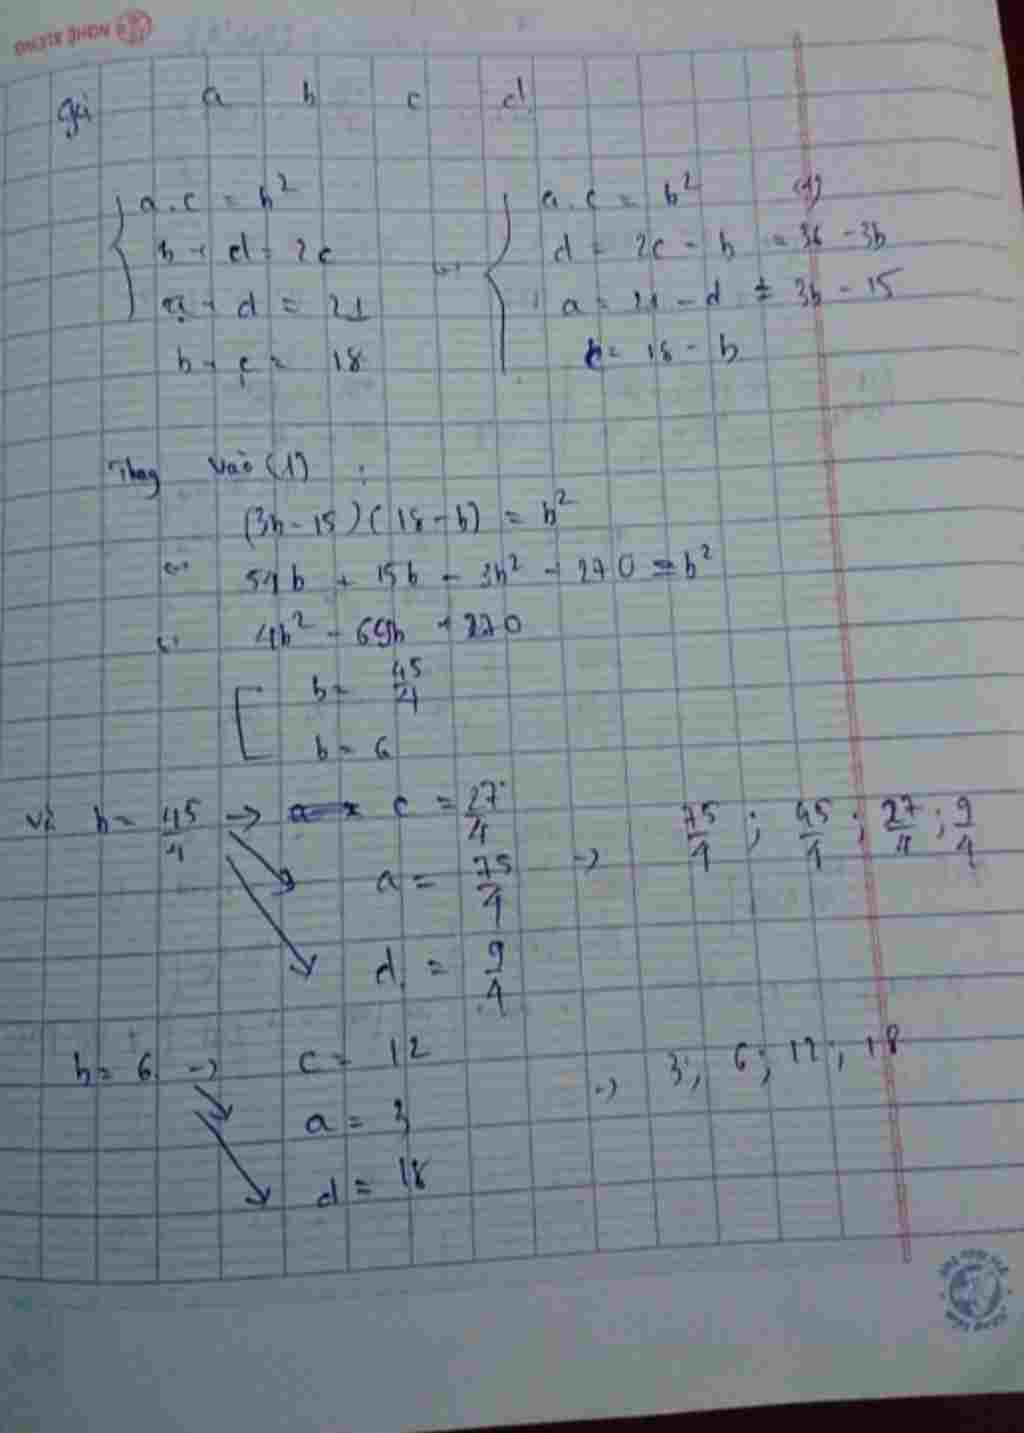 a b c d
a.c = b²
b + d = 2c
a + d = 21
b + c = 18
a.c = b² (1)
d = 2c - b = 36 - 3b
a = 21 - d = 3b - 15
c = 18 - b
Thay vào (1) :
(3b - 15)(18 - b) = b²
54b + 15b - 3b² - 270 = b²
4b² - 69b + 270
b = 45/4
b = 6
Với b = 45/4 → c = 27/4
a = 75/4 → 75/4 ; 45/4 ; 27/4 ; 9/4
d = 9/4
b = 6 → c = 12
a = 3 → 3 ; 6 ; 12 ; 18
d = 18